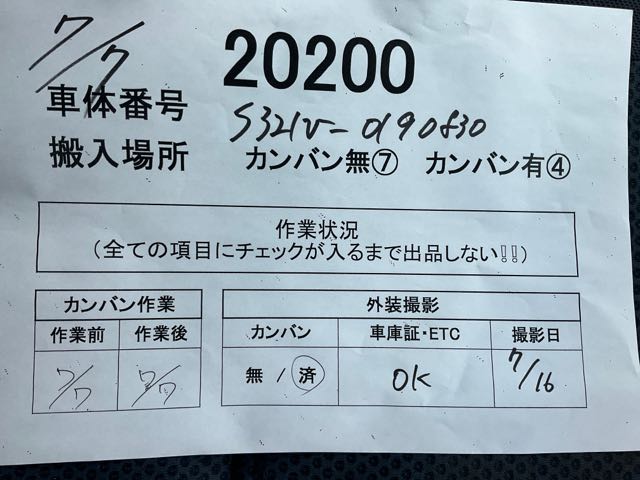 7/7
20200
車体番号 S321V-0190830
搬入場所 カンバン無⑦ カンバン有④
作業状況
(全ての項目にチェックが入るまで出品しない!!)
カンバン作業
作業前 作業後
7/7 7/7
外装撮影
カンバン 車庫証・ETC 撮影日
無 / 済 OK 7/16